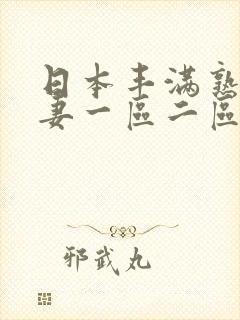 日本丰满熟
妻一區二區
邪武丸